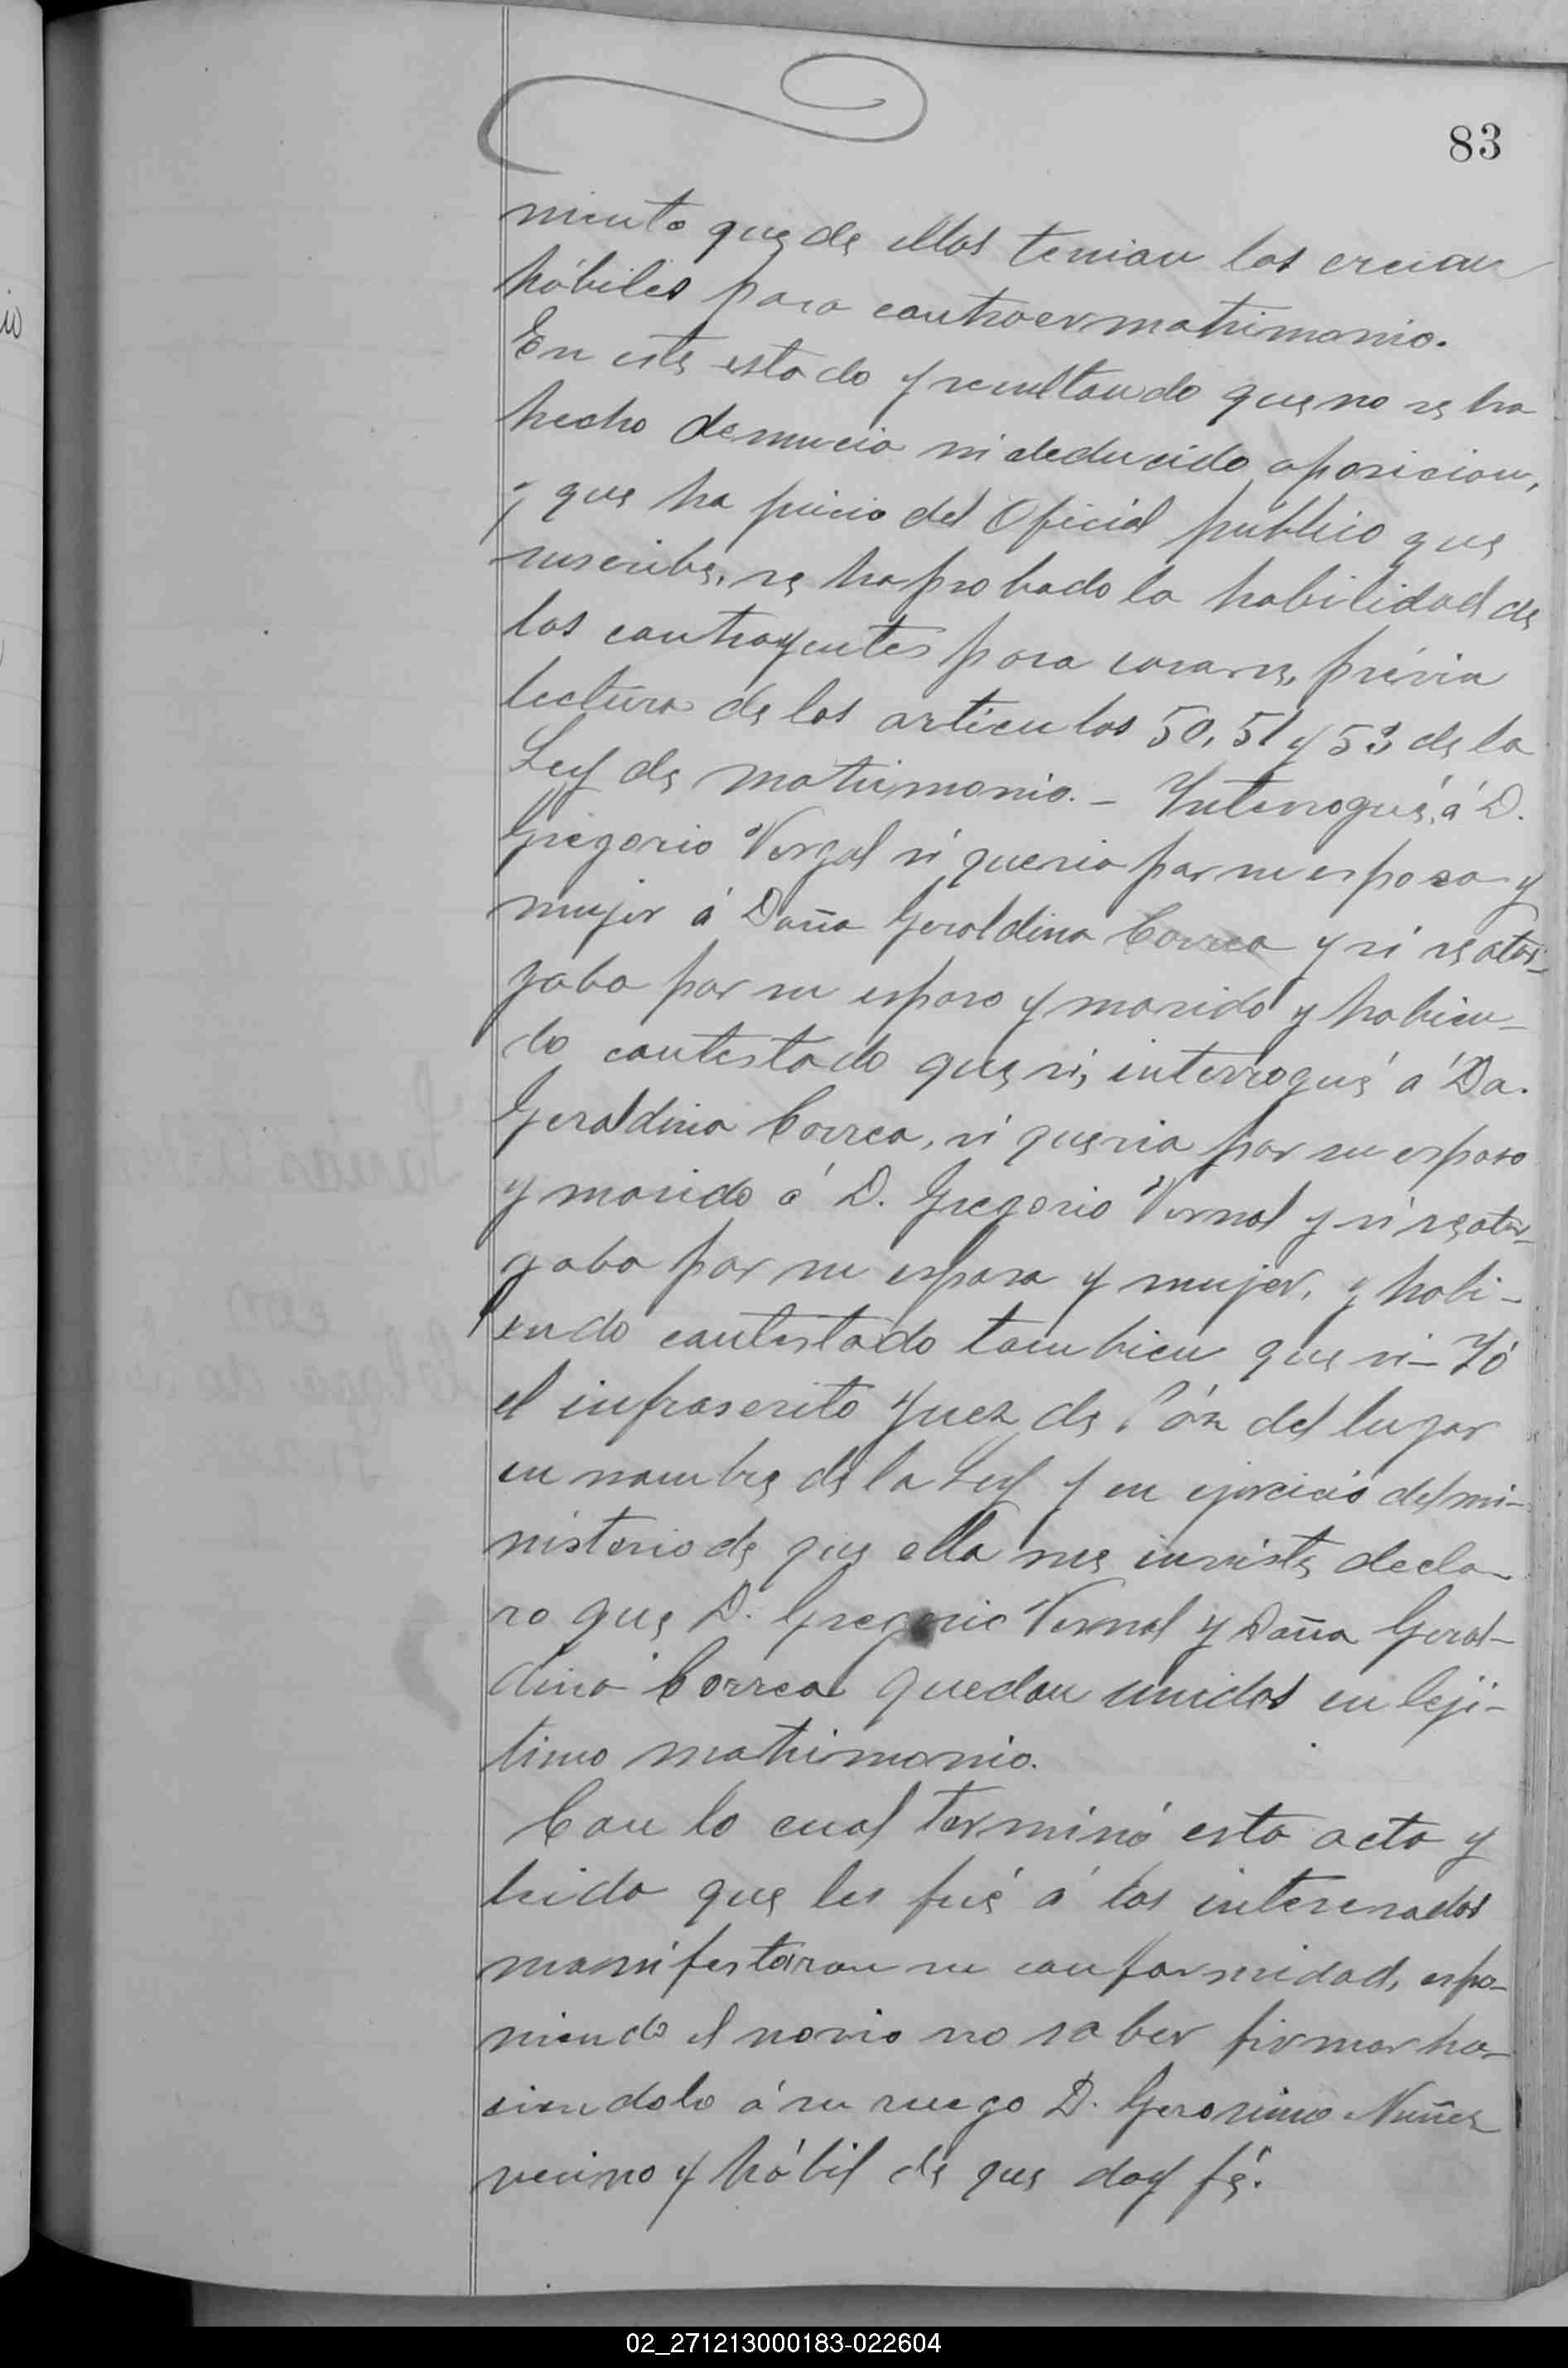 83
miento que de ellos tenian los creian
hábiles para contraer matrimonio.
En este estado y resultando que no se ha
hecho denuncia ni deducido oposicion,
y que ha juicio del Oficial público que
suscribe, se ha probado la habilidad de
los contrayentes para casarse, prévia
lectura de los articulos 50, 51 y 53 de la
Ley de matrimonio. - Interrogué, á D.
Gregorio Vergal si queria por su esposa y
mujer á Doña Geraldina Correa y si se otor-
gaba por su esposo y marido y habien-
do contestado que si, interrogué á Da.
Geraldina Correa, si queria por su esposo
y marido á D. Gregorio Vernal y si se otor-
gaba por su esposa y mujer, y habi-
endo contestado tambien que si - Yó
el infrascrito Juez de Páz del lugar
en nombre de la Ley y en ejercicio del mi-
nisterio de que ella me inviste, decla-
ro que D. Gregorio Vernal y Doña Geral-
dina Correa quedan unidos en leji-
timo matrimonio.
Con lo cual terminó esta acta y
leida que les fué á los interesados
manifestaron su conformidad, espo-
niendo el novio no saber firmar ha-
ciendolo á su ruego D. Geronimo Nuñez
vecino y hábil de que doy fé.
02_271213000183-022604